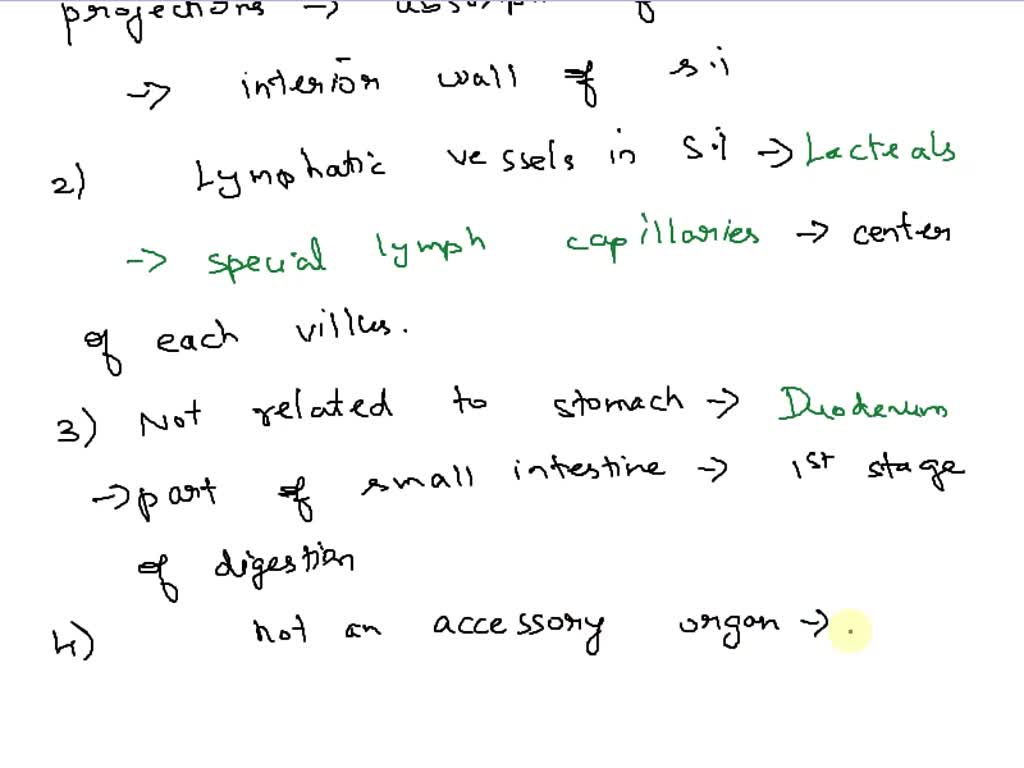 projections →
→ interior wall of s.i
2) Lymphatic vessels in s.i → Lacteals
→ special lymph capillaries → center
of each villus.
3) Not related to stomach → Duodenum
→ part of small intestine → 1st stage
of digestion
4) not an accessory organ → .